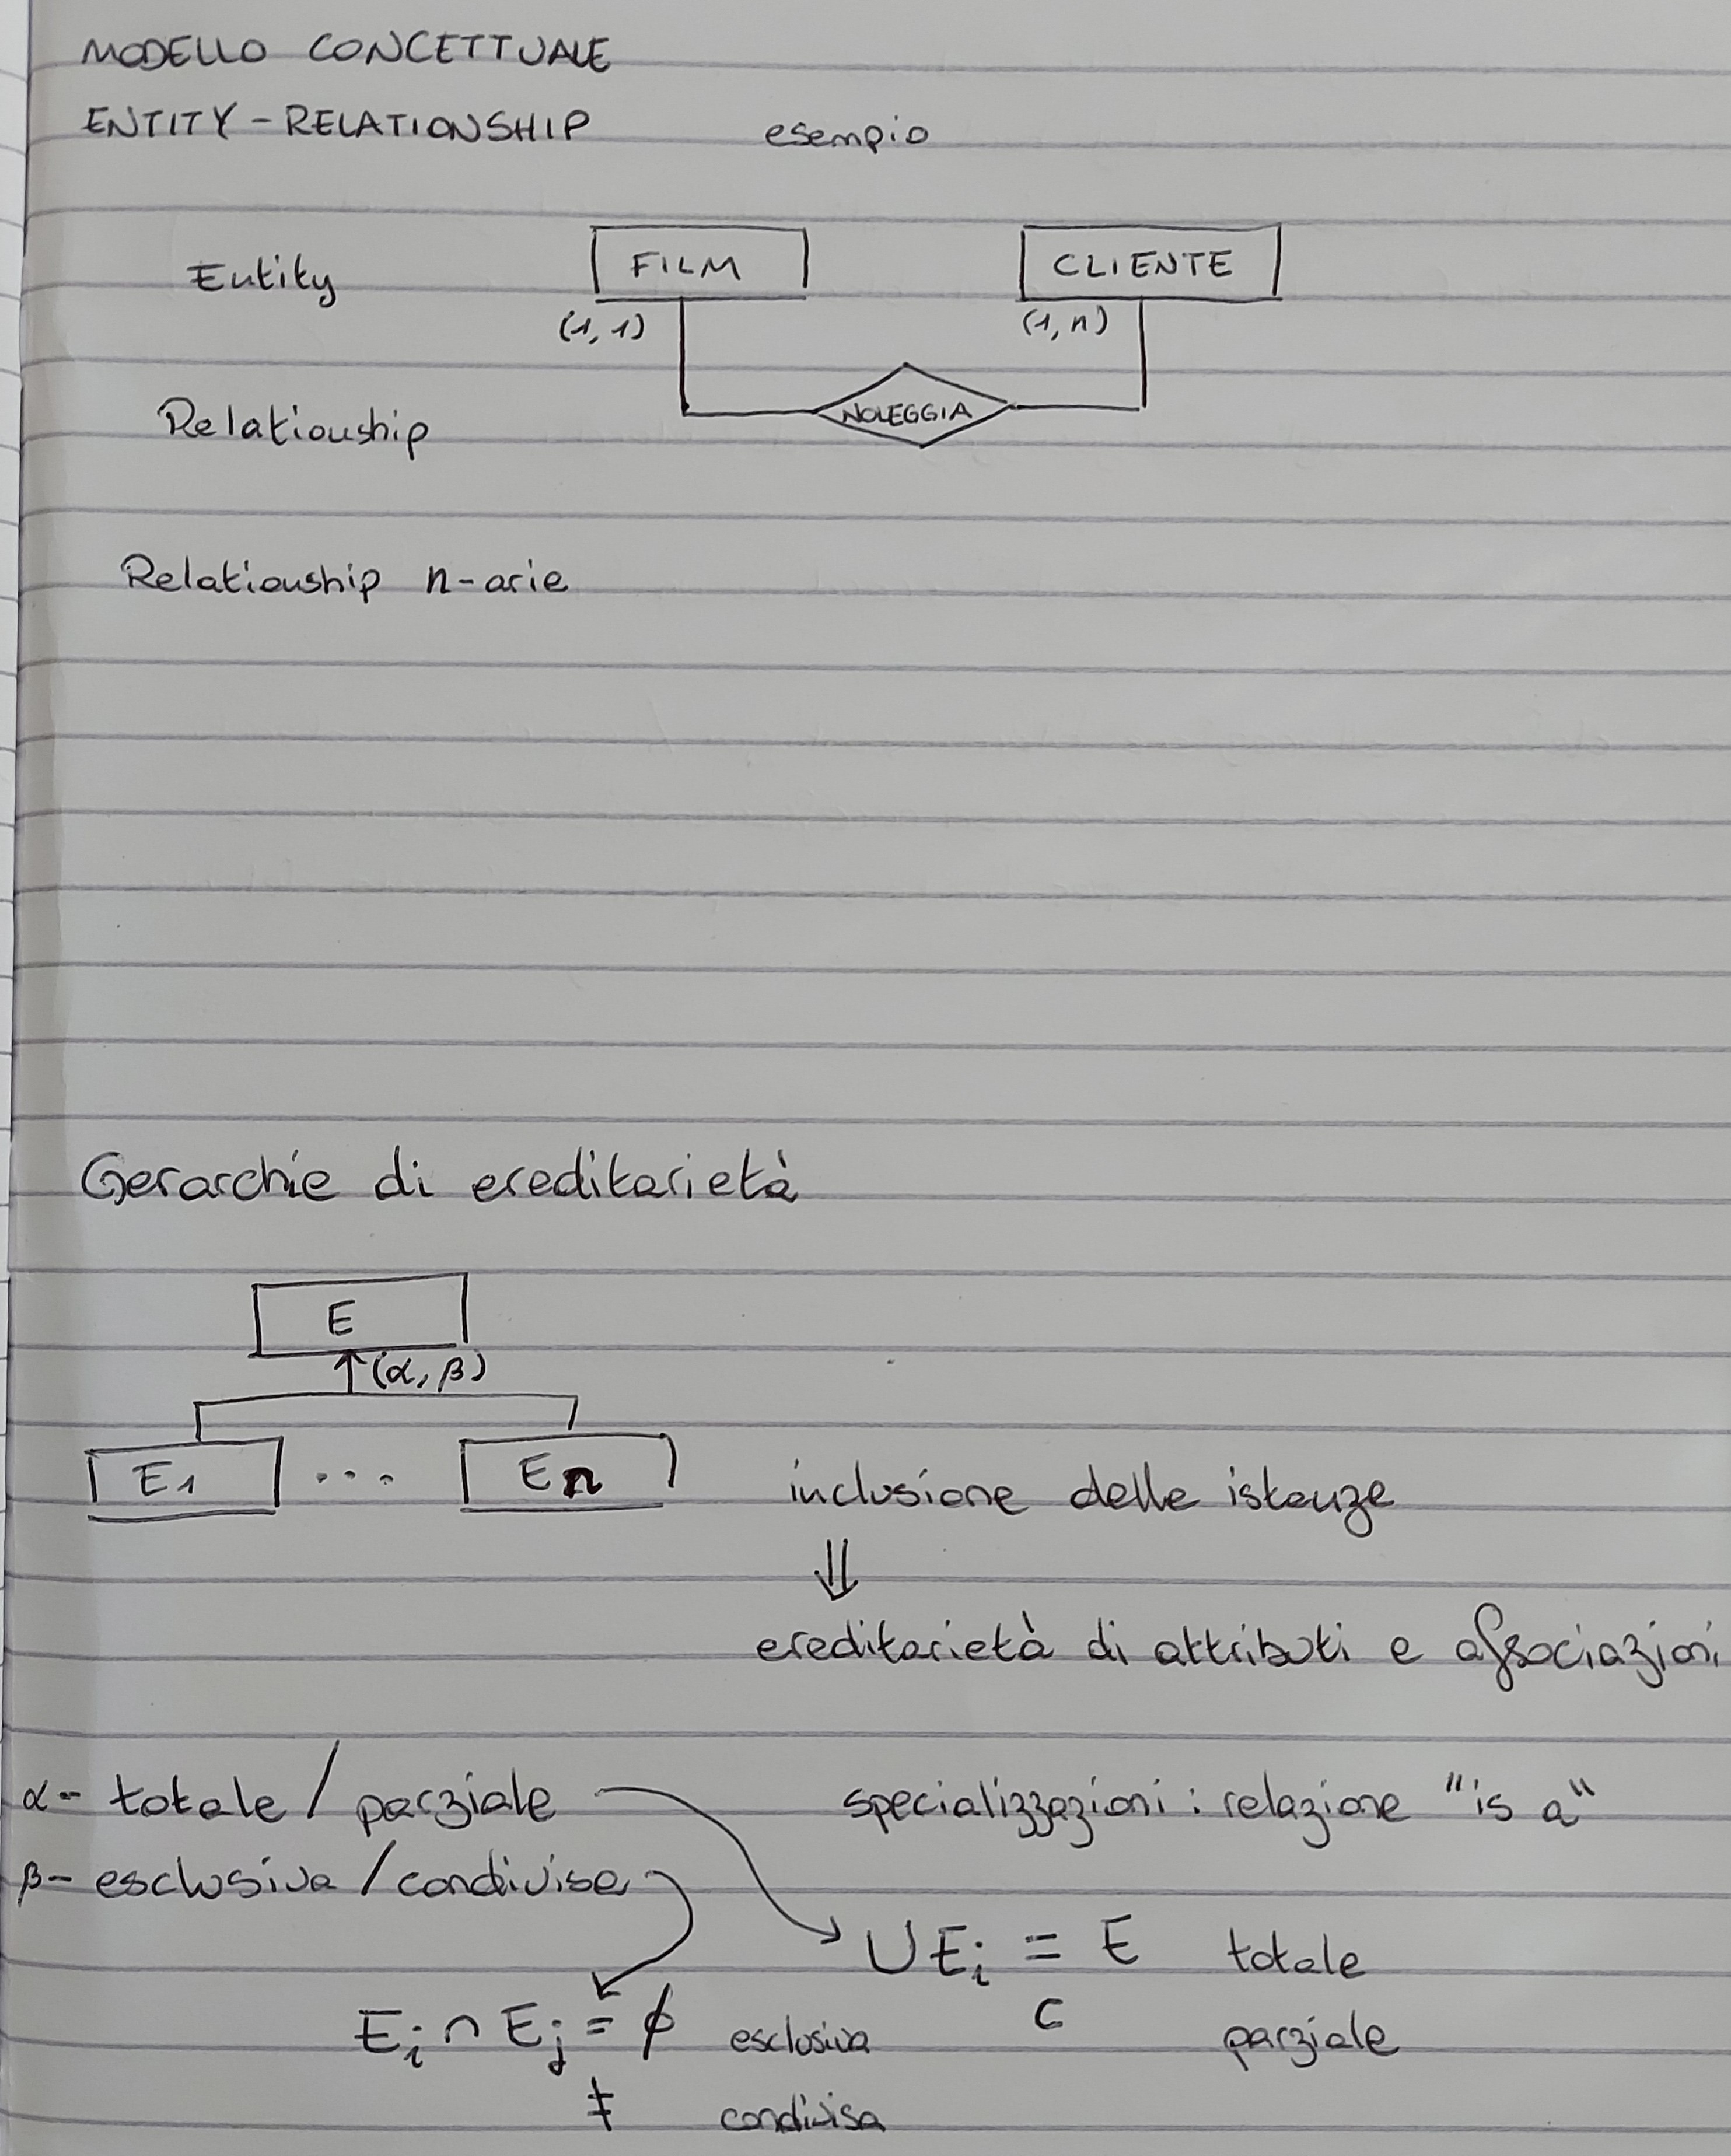 MODELLO CONCETTUALE
ENTITY-RELATIONSHIP esempio
Entity FILM CLIENTE
(1,1) (1,n)
Relationship NOLEGGIA
Relationship n-arie
Gerarchie di ereditarietà
E
↑(α,β)
E1 ... En inclusione delle istanze
⇓
ereditarietà di attributi e associazioni
α- totale / parziale specializzazioni: relazione "is a"
β- esclusiva / condivisa
∪Ei = E totale
⊂ parziale
Ei ∩ Ej = ϕ esclusiva
≠ condivisa